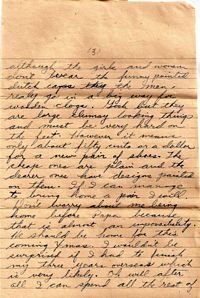 (3)
although the girls and women
don't wear the funny pointed
dutch caps the men
really go in a big way for
wooden clogs. Gosh but they
are large clumsy looking things
and must be very hard on
the feet. However it means
only about fifty cents or a dollar
for a new pair of shoes. The
cheaper ones are plain and the
dearer ones have designs painted
on them. If I can manage
to bring home a pair I will.
Don't worry about me being
home before Papa because
that is almost an impossibility.
He should be home for this
coming Xmas. I wouldn't be
surprised if I had to finish
my three years overseas which
is very likely. Oh well after
all I can spend all the rest of